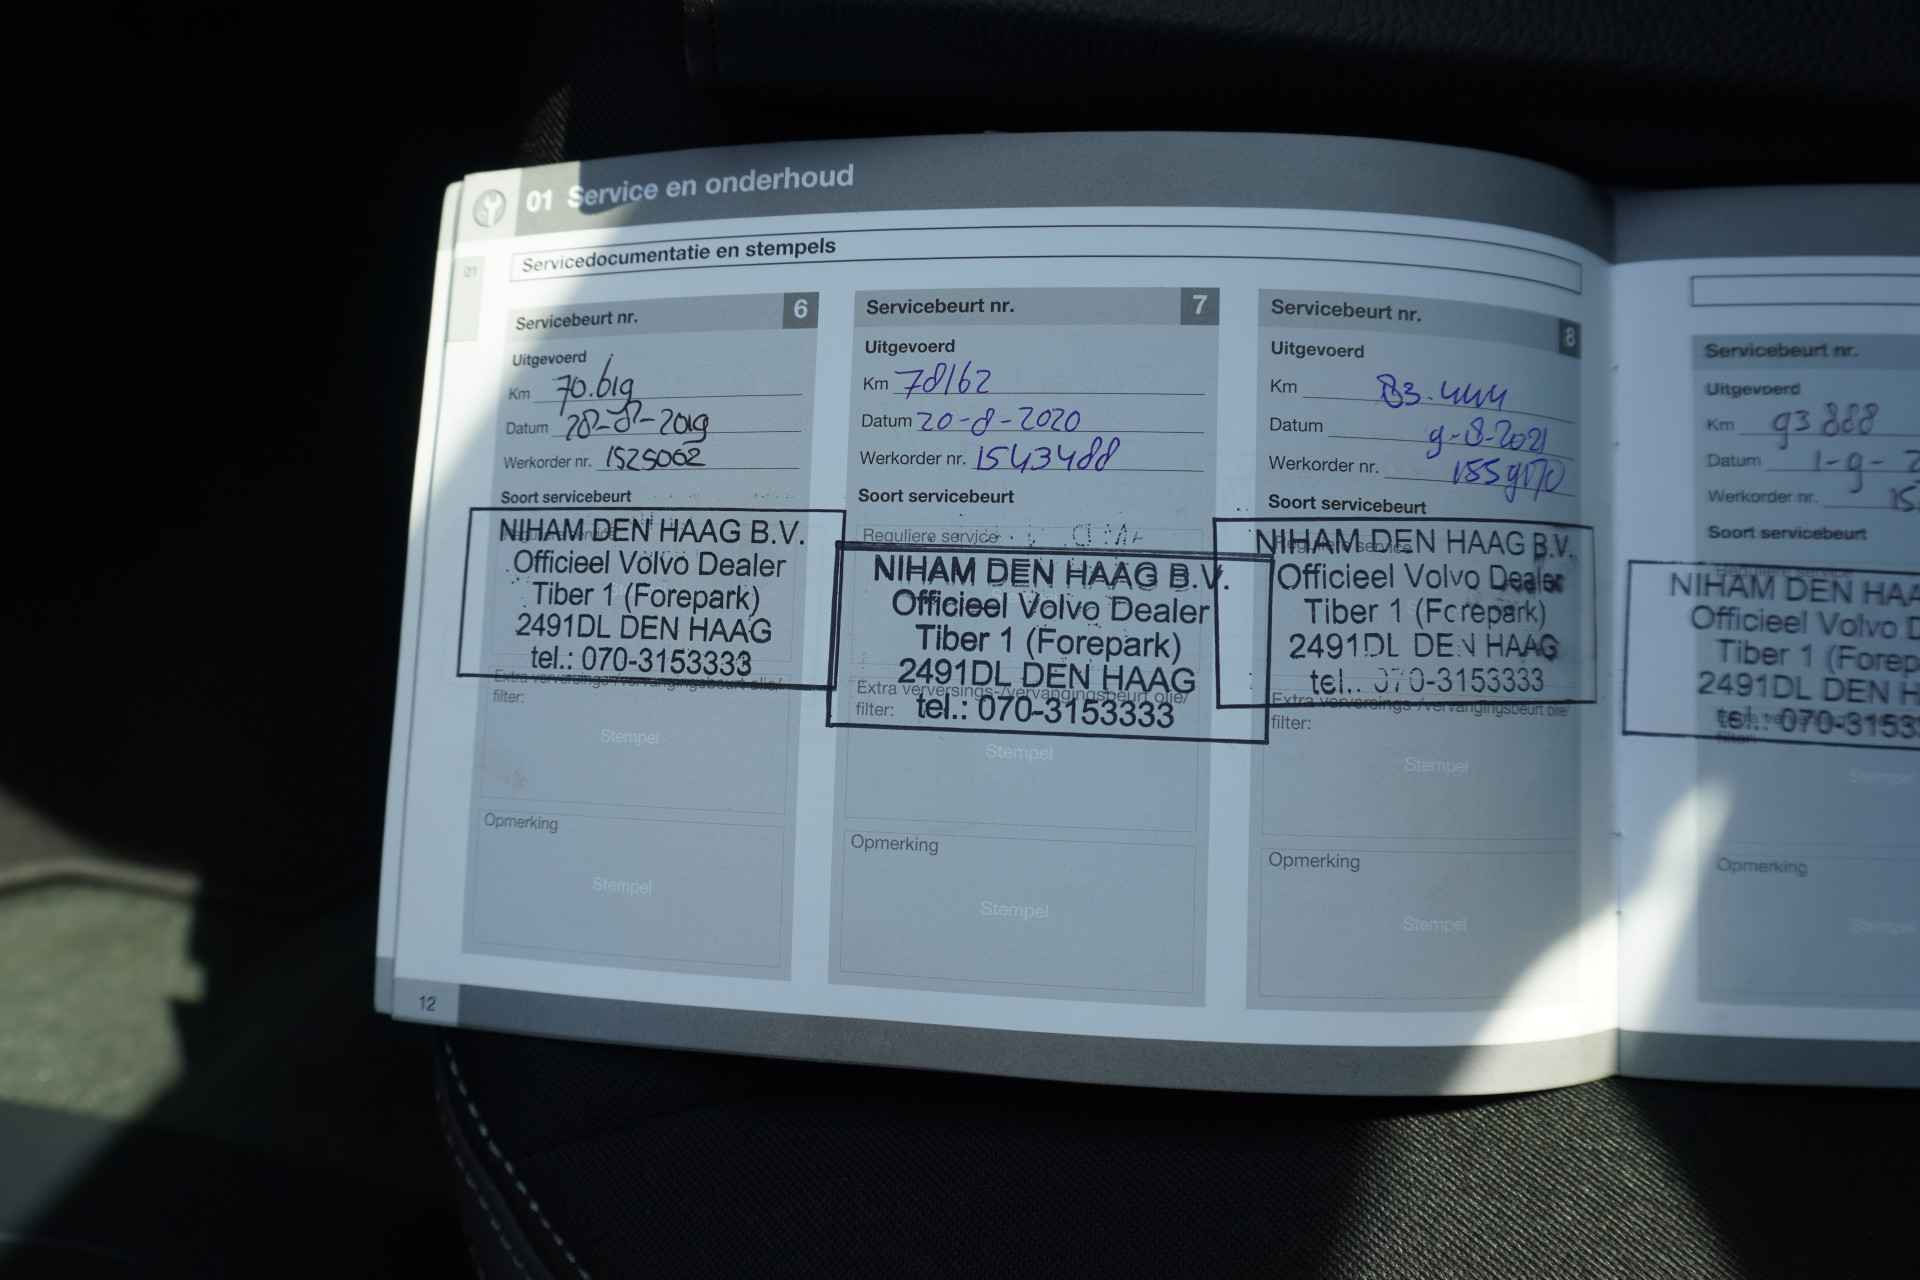 01 Service en onderhoud
01
Servicedocumentatie en stempels
Servicebeurt nr. 6
Uitgevoerd
Km 70.619
Datum 28-8-2019
Werkorder nr. 1525062
Soort servicebeurt
NIHAM DEN HAAG B.V.
Officieel Volvo Dealer
Tiber 1 (Forepark)
2491DL DEN HAAG
tel.: 070-3153333
Extra verversings-/vervangingsbeurt olie/
filter:
Stempel
Opmerking
Stempel
Servicebeurt nr. 7
Uitgevoerd
Km 78162
Datum 20-8-2020
Werkorder nr. 1543488
Soort servicebeurt
Reguliere service
NIHAM DEN HAAG B.V.
Officieel Volvo Dealer
Tiber 1 (Forepark)
2491DL DEN HAAG
Extra verversings-/vervangingsbeurt olie/
filter:
tel.: 070-3153333
Stempel
Opmerking
Stempel
Servicebeurt nr. 8
Uitgevoerd
Km 83.444
Datum 9-8-2021
Werkorder nr.
Soort servicebeurt
Reguliere service
NIHAM DEN HAAG B.V.
Officieel Volvo Dealer
Tiber 1 (Forepark)
2491DL DEN HAAG
tel.: 070-3153333
Extra verversings-/vervangingsbeurt olie/
filter:
Stempel
Opmerking
Stempel
12
Servicebeurt nr.
Uitgevoerd
Km 93888
Datum 1-9-
Werkorder nr. 15
Soort servicebeurt
NIHAM DEN HAA
Officieel Volvo D
Tiber 1 (Forep
2491DL DEN H
tel.: 070-3153
filter:
Stempel
Opmerking
Stempel